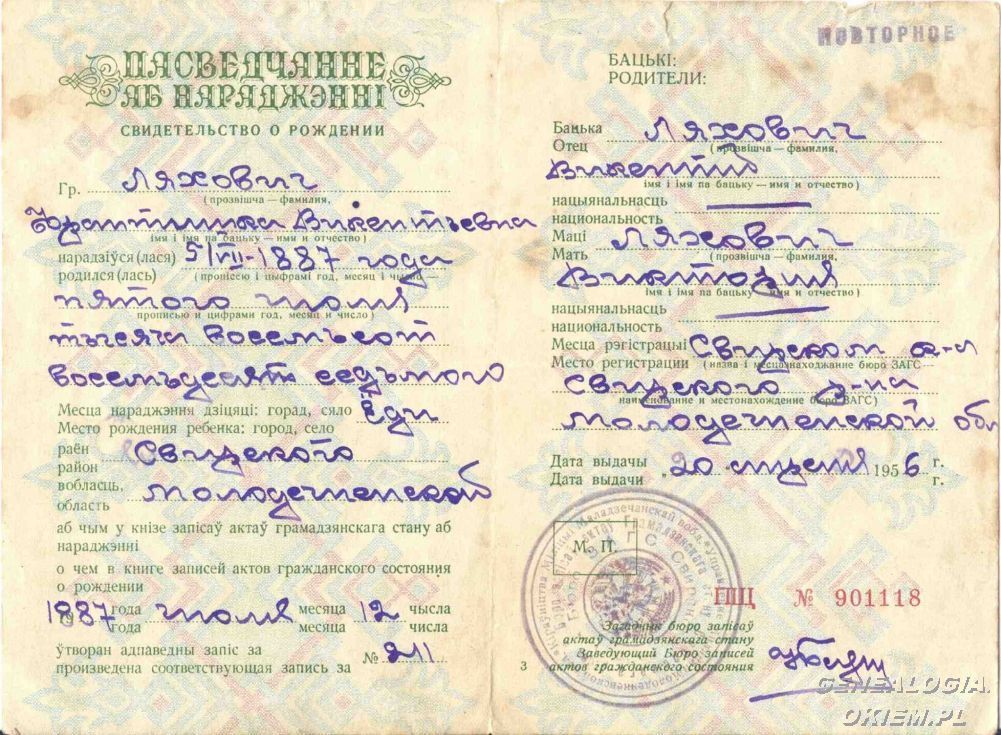 ПАСВЕДЧАННЕ
АБ НАРАДЖЭННІ
СВИДЕТЕЛЬСТВО О РОЖДЕНИИ
Гр. Ляхович
(прозвішча — фамилия,
Франтишка Викентьевна
імя і імя па бацьку — имя и отчество)
нарадзіўся (лася) 5/VII-1887 года
родился (лась) (прописью і цыфрамі год, месяц і чысло —
пятого июля
прописью и цифрами год, месяц и число)
тысяча восемьсот
восемьдесят седьмого
Месца нараджэння дзіцяці: горад, сяло
Место рождения ребенка: город, село
раён Свирского
район
вобласць, Молодечненской
область
аб чым у кнізе запісаў актаў грамадзянскага стану аб
нараджэнні
о чем в книге записей актов гражданского состояния
о рождении
1887 года июля месяца 12 чысла
года месяца числа
ўтворан адпаведны запіс за
произведена соответствующая запись за № 211
ПОВТОРНОЕ
БАЦЬКІ:
РОДИТЕЛИ:
Бацька Ляхович
Отец (прозвішча — фамилия,
Викентий
імя і імя па бацьку — имя и отчество)
нацыянальнасць
национальность
Маці Ляхович
Мать (прозвішча — фамилия,
Виктория
імя і імя па бацьку — имя и отчество)
нацыянальнасць
национальность
Месца рэгістрацыі Свирском
Место регистрации (назва і месцазнаходжание бюро ЗАГС
Свирского р-на
наименование и местонахождение бюро ЗАГС)
Молодечненской обл
Дата выдачы „20 апреля 1956 г.
Дата выдачи г.
М. П.
ПЦ № 901118
Загадчык бюро запісаў
актаў грамадзянскага стану
Заведующий Бюро записей
актов гражданского состояния
3
GENEALOGIA.
OKIEM.PL